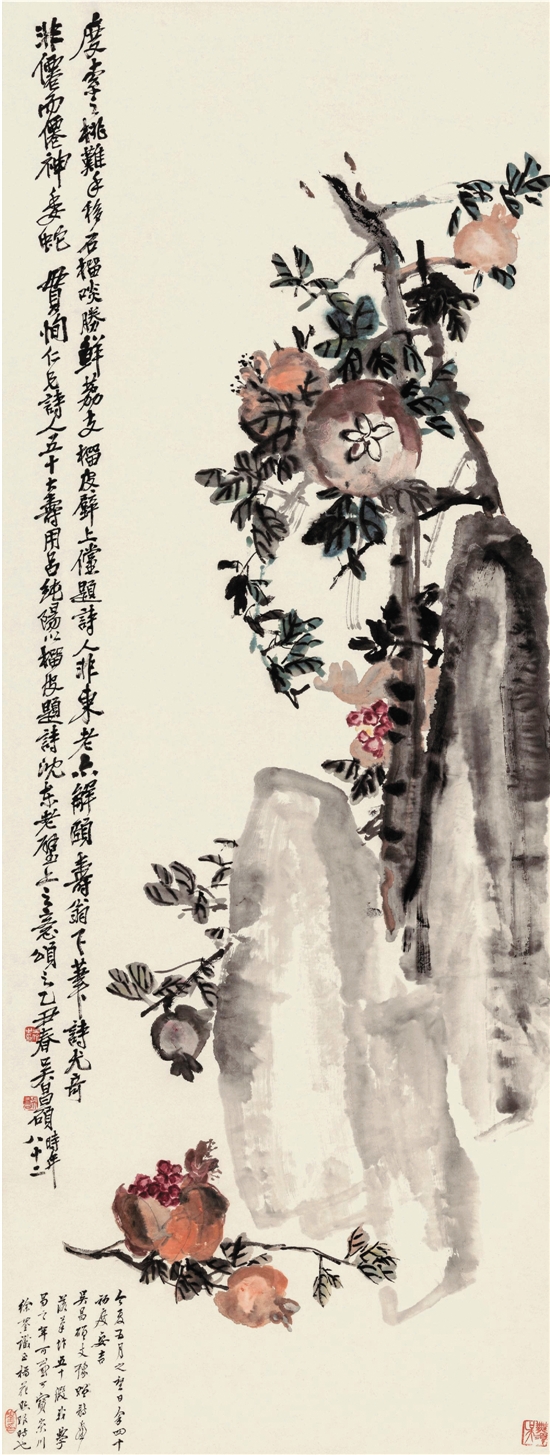 度索之桃難手移石榴啖勝鮮荔支榴皮壁上儻題詩人非東老亦解頤壽翁下筆詩尤奇
非僊而僊神委蛇 貫恂仁兄詩人五十大壽用呂純陽以榴皮題詩沈東老壁上之意頌之乙丑春吳昌碩時年八十二
今夏五月之望日余四十
初度安吉
吳昌碩丈猥賜
五十假我
年可寶
徐鋆識正榴花照眼時也